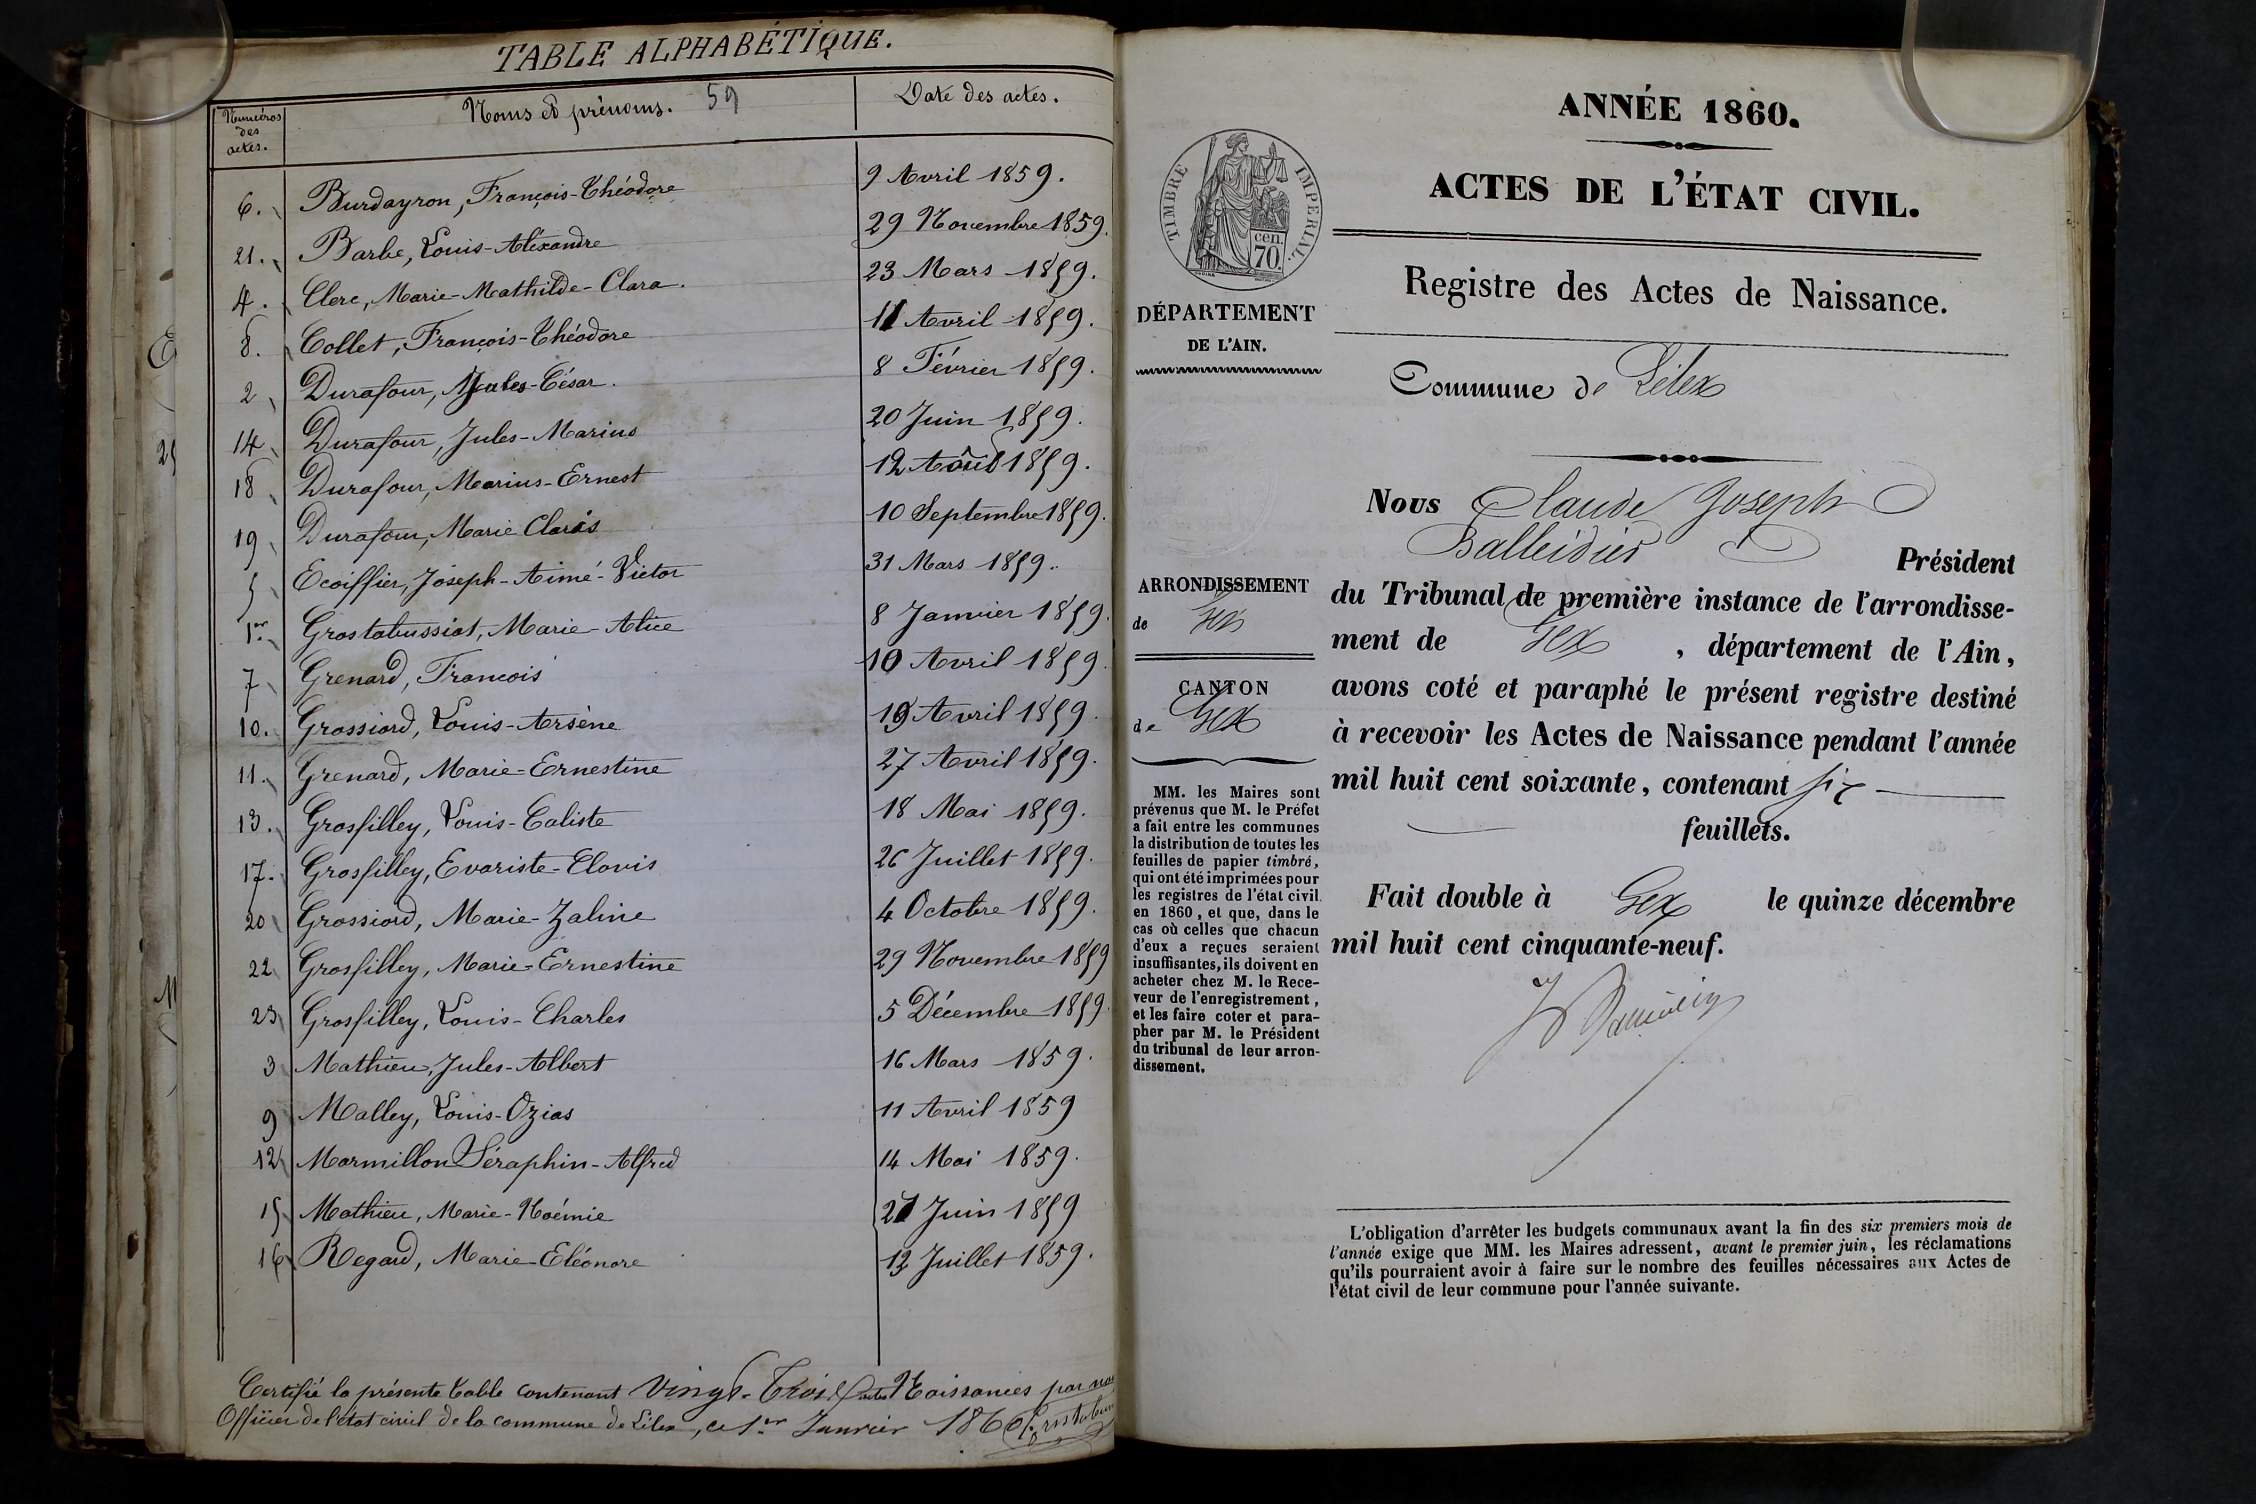 TABLE ALPHABÉTIQUE.
Numéros des actes. Noms et prénoms. 59 Date des actes.
6. Burdayron, François-Théodore 9 Avril 1859.
21. Barbe, Louis-Alexandre 29 Novembre 1859.
4. Clerc, Marie-Mathilde-Clara. 23 Mars 1859.
8. Collet, François-Théodore 11 Avril 1859.
2 Durafour, Jules-César. 8 Février 1859.
14 Durafour, Jules-Marius 20 Juin 1859.
18 Durafour, Marius-Ernest 12 Août 1859.
19 Durafour, Marie Claris 10 Septembre 1859.
5 Ecoiffier, Joseph-Aimé-Victor 31 Mars 1859.
1er Grostabussiat, Marie-Alice 8 Janvier 1859.
7 Grenard, François 10 Avril 1859.
10. Grossiord, Louis-Arsène 19 Avril 1859.
11. Grenard, Marie-Ernestine 27 Avril 1859.
13. Grosfilley, Louis-Caliste 18 Mai 1859.
17. Grosfilley, Evariste-Clovis 26 Juillet 1859.
20 Grossiord, Marie-Zaline 4 Octobre 1859.
22 Grosfilley, Marie-Ernestine 29 Novembre 1859
23 Grosfilley, Louis-Charles 5 Décembre 1859.
3 Mathieu, Jules-Albert 16 Mars 1859.
9 Malley, Louis-Ozias 11 Avril 1859
12 Marmillon Séraphin-Alfred 14 Mai 1859.
15 Mathieu, Marie-Noémie 21 Juin 1859
16 Regard, Marie-Eléonore 13 Juillet 1859.
Certifié la présente table contenant Vingt-Trois Naissances par nous
Officier de l'état civil de la commune de Lélex, ce 1er Janvier 1860
ANNÉE 1860.
ACTES DE L'ÉTAT CIVIL.
Registre des Actes de Naissance.
TIMBRE IMPÉRIAL.
cen. 70.
DÉPARTEMENT
DE L'AIN.
Commune de Lélex
ARRONDISSEMENT
de Gex
CANTON
de Gex
MM. les Maires sont
prévenus que M. le Préfet
a fait entre les communes
la distribution de toutes les
feuilles de papier timbré,
qui ont été imprimées pour
les registres de l'état civil
en 1860, et que, dans le
cas où celles que chacun
d'eux a reçues seraient
insuffisantes, ils doivent en
acheter chez M. le Rece-
veur de l'enregistrement,
et les faire coter et para-
pher par M. le Président
du tribunal de leur arron-
dissement.
Nous Claude Joseph
Balleidier Président
du Tribunal de première instance de l'arrondisse-
ment de Gex , département de l'Ain,
avons coté et paraphé le présent registre destiné
à recevoir les Actes de Naissance pendant l'année
mil huit cent soixante, contenant six
feuillets.
Fait double à Gex le quinze décembre
mil huit cent cinquante-neuf.
L'obligation d'arrêter les budgets communaux avant la fin des six premiers mois de
l'année exige que MM. les Maires adressent, avant le premier juin, les réclamations
qu'ils pourraient avoir à faire sur le nombre des feuilles nécessaires aux Actes de
l'état civil de leur commune pour l'année suivante.